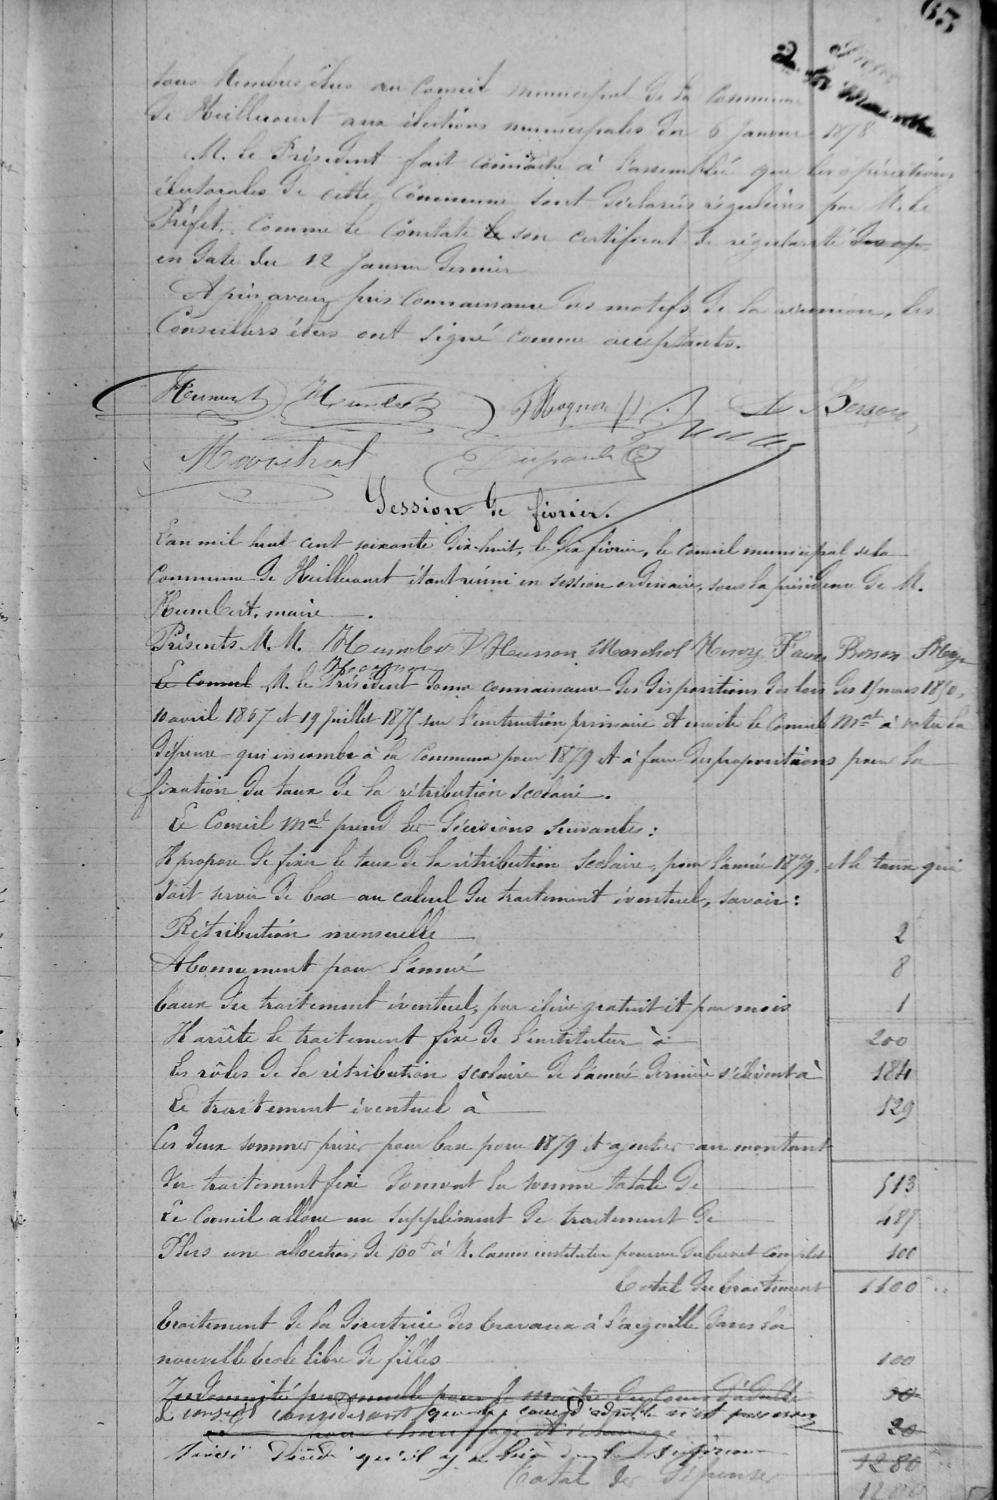 65
tous Membres élus au Conseil municipal de la Commune
de Heillecourt aux élections municipales du 6 Janvier 1878
M. le Président fait connaître à l'assemblée que les opérations
électorales de cette Commune sont déclarées régulières par M. le
Préfet, comme le constate le son certificat de régularité des op
en date du 12 Janvier dernier
Après avoir pris connaissance des motifs de la réunion, les
Conseillers élus ont signé comme acceptants.
Humbert
Session de février.
L'an mil huit cent soixante dix-huit, le dix février, le conseil municipal de la
Commune de Heillecourt étant réuni en session ordinaire, sous la présidence de M.
Humbert, maire
Présents M. M. Humbert Husson Marchal Henry Favre Bosson
Le Conseil M. le Président donne connaissance des dispositions des lois des 15 mars 1850,
10 avril 1867 et 19 Juillet 1875 sur l'instruction primaire et invite le Conseil Mal à voter la
dépense qui incombe à la Commune pour 1879 et à faire des propositions pour la
fixation du taux de la rétribution scolaire.
Le Conseil Mal prend les décisions suivantes :
Il propose de fixer le taux de la rétribution scolaire, pour l'année 1879, et le taux qui
doit servir de base au calcul du traitement éventuel, savoir :
Rétribution mensuelle 2
Abonnement pour l'année 8
Taux du traitement éventuel, par élève gratuit et par mois 1
Il arrête le traitement fixe de l'instituteur à 200
Les rôles de la rétribution scolaire de l'année dernière s'élèvent à 184
Le traitement éventuel à 129
Ces deux sommes prises pour base pour 1879 et ajoutées au montant
du traitement fixe donnent la somme totale de 513
Le Conseil alloue un supplément de traitement de 487
Plus une allocation de 100f à M. instituteur pourvu du brevet complet 100
Total du traitement 1100
Traitement de la directrice des travaux à l'aiguille dans la
nouvelle école libre de filles 100
Indemnité personnelle pour le maître du Cours d'adulte
Le conseil considérant que le cours d'adulte n'est pas
pour chauffage et éclairage 20
décide qu'il y a lieu de le
Total des dépenses 1280